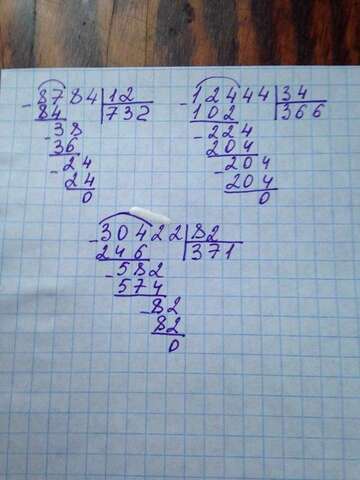 8784 | 12
84 | 732
38
36
24
24
0
12444 | 34
102 | 366
224
204
204
204
0
30422 | 82
246 | 371
582
574
82
82
0